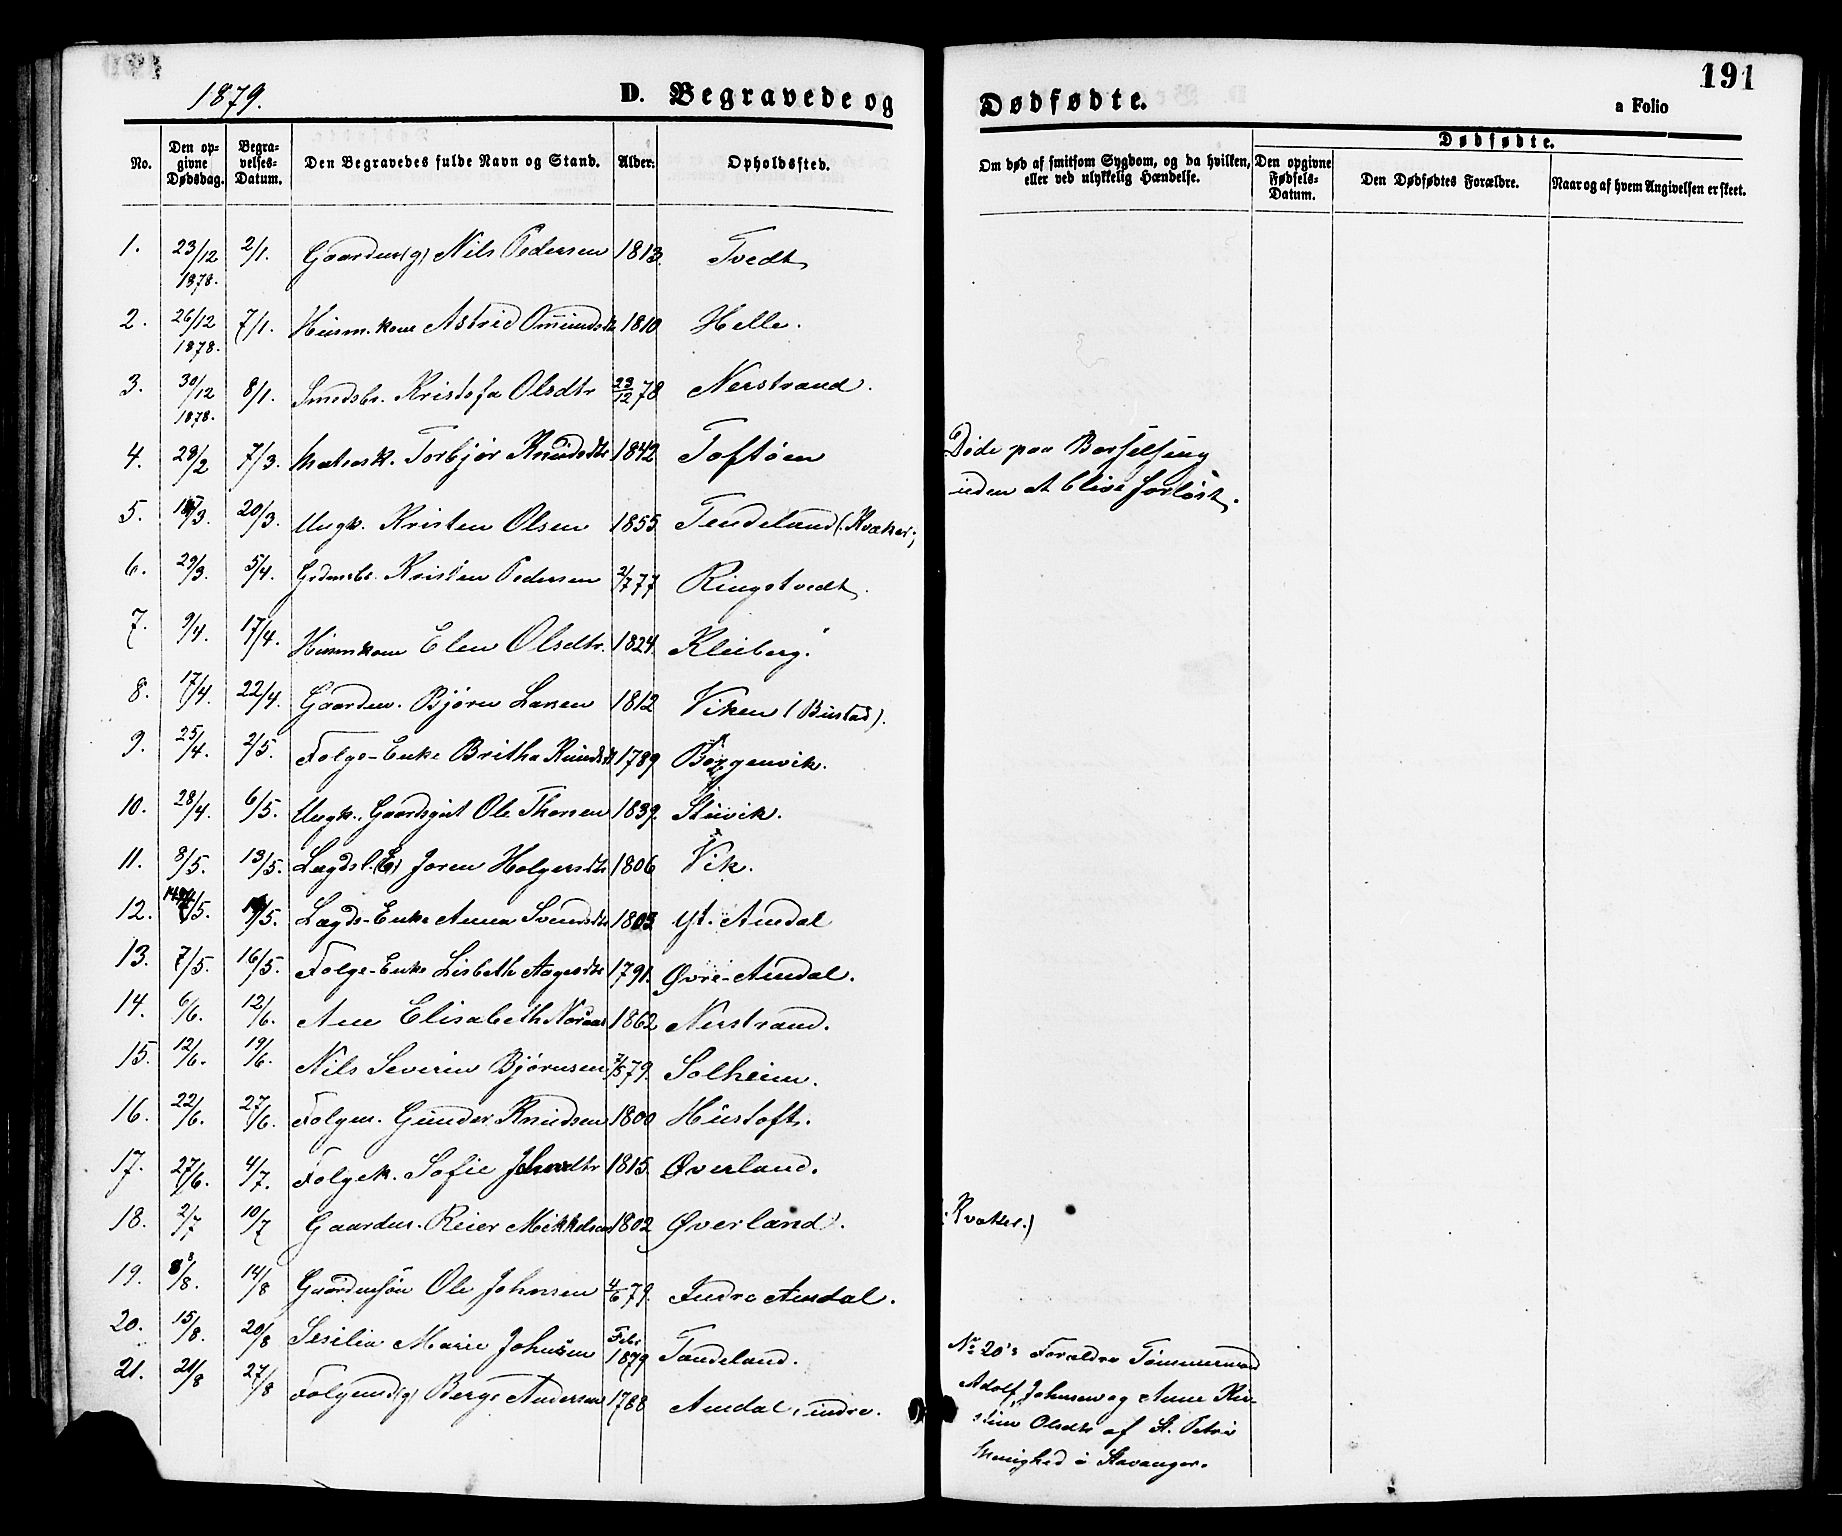 1879. D. Begravede og Dødfødte. 191
a Folio
No. Den opgivne Dødsdag. Begravelses-Datum. Den Begravedes fulde Navn og Stand. Alder. Opholdssted. Om død af smitsom Sygdom, og da hvilken, eller ved ulykkelig Hændelse. Dødfødte. Den opgivne Fødsels-Datum. Den Dødfødtes Forældre. Naar og af hvem Angivelsen er skeet.
1. 23/12 1878. 2/1. Gaardm (g) Nils Pedersen 1813. Tvedt
2. 26/12 1878. 7/1. Husm. kone Astrid Omundsdtr 1810 Helle.
3. 30/12 1878. 8/1. Smedsb. Kristofa Olsdtr 23/12 78 Nerstrand.
4. 28/2 7/3. Matrosk. Torbjør Knudsdtr 1842 Toftøen Døde paa Barselseng
uden at blive forløst.
5. /3. 20/3. Ungk. Kristen Olsen 1855. Tendeland (Kvæker)
6. 29/3. 5/4. Grdmsb. Kristen Pedersen 2/7 77 Ringstvedt.
7. 9/4. 17/4. Husmkone Elen Olsdtr. 1824. Kleiberg.
8. 17/4. 22/4. Gaardm. Bjørn Larsen 1812 Viken (Bustad).
9. 25/4. 2/5. Folge-Enke Britha Knudsdtr 1789 Bøggenvik.
10. 28/4. 6/5. Ungk. Gaardsgut Ole Thorsen 1839. Stuvik.
11. 8/5. 13/5. Lægdsl. (E) Joren Holgersdtr 1806 Vik.
12. /5. /5. Lægds-Enke Anna Svendsdtr 1803 Yt. Amdal
13. 7/5. 16/5. Folge-Enke Lisbeth Aagesdtr 1791. Øvre-Amdal.
14. 6/6. 12/6. Ane Elisabeth 1862 Nerstrand.
15. 12/6. 19/6. Nils Severin Bjørnsen 7/5 79. Solheim.
16. 22/6. 27/6. Folgm. Gunder Knudsen 1800 Hustoft.
17. 27/6. 4/7. Folgek. Sofie Johnsdtr 1815. Øverland.
18. 2/7 10/7 Gaardm. Reier Mikkelsen 1802 Øverland. (Kvæker.)
19. 8/8. 14/8 Gaardmsøn Ole Johnsen 4/6 79. Indre Amdal.
20. 15/8. 20/8 Sesilia Marie Johnsen Febr 1879 Tandeland. No 20's Forældre Tømmermand
21. 21/8 27/8 Folgemd (g) Berge Andersen 1788 Amdal, indre. Adolf Johnsen og Anne Kir-
stine Olsdtr af St. Petri
Menighed i Stavanger.